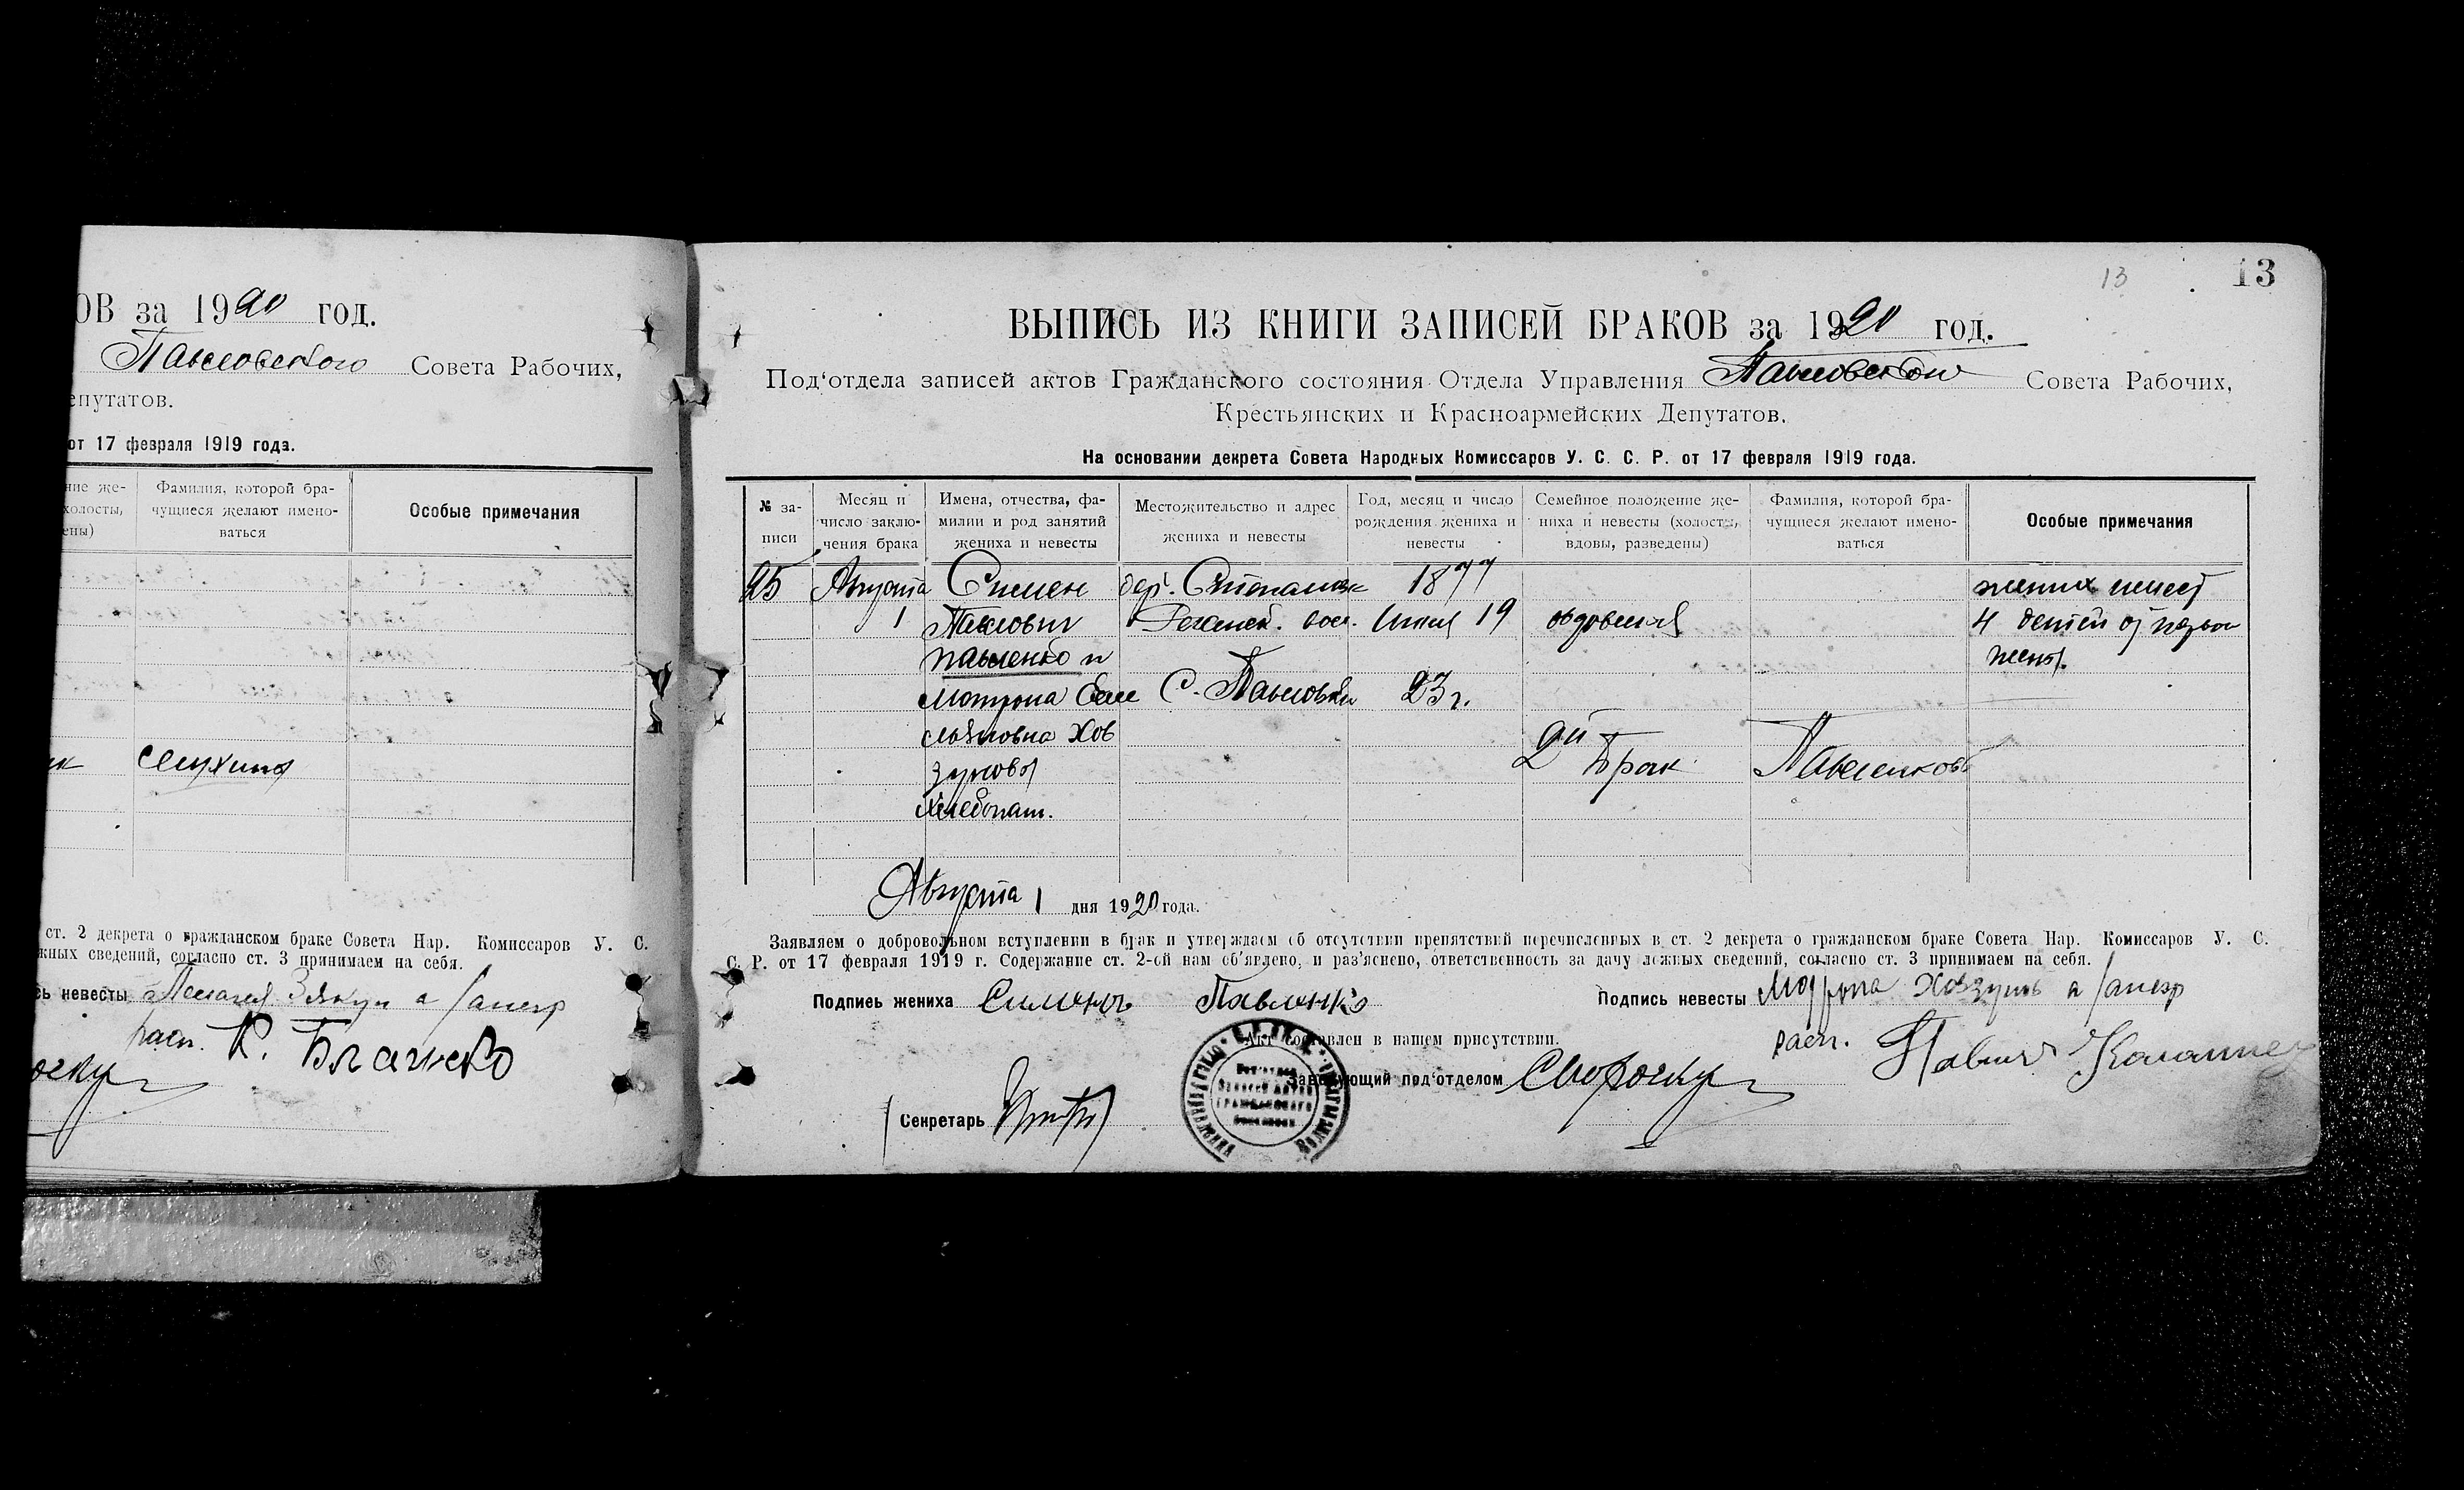 ОВ за 1920 год.
Павловского Совета Рабочих,
епутатов.
от 17 февраля 1919 года.
ние же-
холосты,
ены)
Фамилия, которой бра-
чущиеся желают имено-
ваться
Особые примечания
ст. 2 декрета о гражданском браке Совета Нар. Комиссаров У. С.
жных сведений, согласно ст. 3 принимаем на себя.
сь невесты
расп. К.
13
13
ВЫПИСЬ ИЗ КНИГИ ЗАПИСЕЙ БРАКОВ за 1920 год.
Под‘отдела записей актов Гражданского состояния Отдела Управления Павловского Совета Рабочих,
Крестьянских и Красноармейских Депутатов.
На основании декрета Совета Народных Комиссаров У. С. С. Р. от 17 февраля 1919 года.
№ за-
писи
Месяц и
число заклю-
чения брака
Имена, отчества, фа-
милии и род занятий
жениха и невесты
Местожительство и адрес
жениха и невесты
Год, месяц и число
рождения жениха и
невесты
Семейное положение же-
ниха и невесты (холосты,
вдовы, разведены)
Фамилия, которой бра-
чущиеся желают имено-
ваться
Особые примечания
25 Августа Симен дер. 1877 жених имеет
1 Павлович Июня 19 овдовелый 4 детей от первой
Павленко и жены.
Мотрона Еме С. Павловки 23 г.
льяновна Хов
зунова 2й Брак Павленково
Хлебопаш.
Августа 1 дня 1920 года.
Заявляем о добровольном вступлении в брак и утверждаем об отсутствии препятствий перечисленных в ст. 2 декрета о гражданском браке Совета Нар. Комиссаров У. С.
С. Р. от 17 февраля 1919 г. Содержание ст. 2-ой нам об’явлено, и раз’яснено, ответственность за дачу ложных сведений, согласно ст. 3 принимаем на себя.
Подпись жениха Симонъ Павленко
Подпись невесты Мотрона Ховзунь а
расп. Павил
Акт составлен в нашем присутствии.
Заведующий под‘отделом
Секретарь